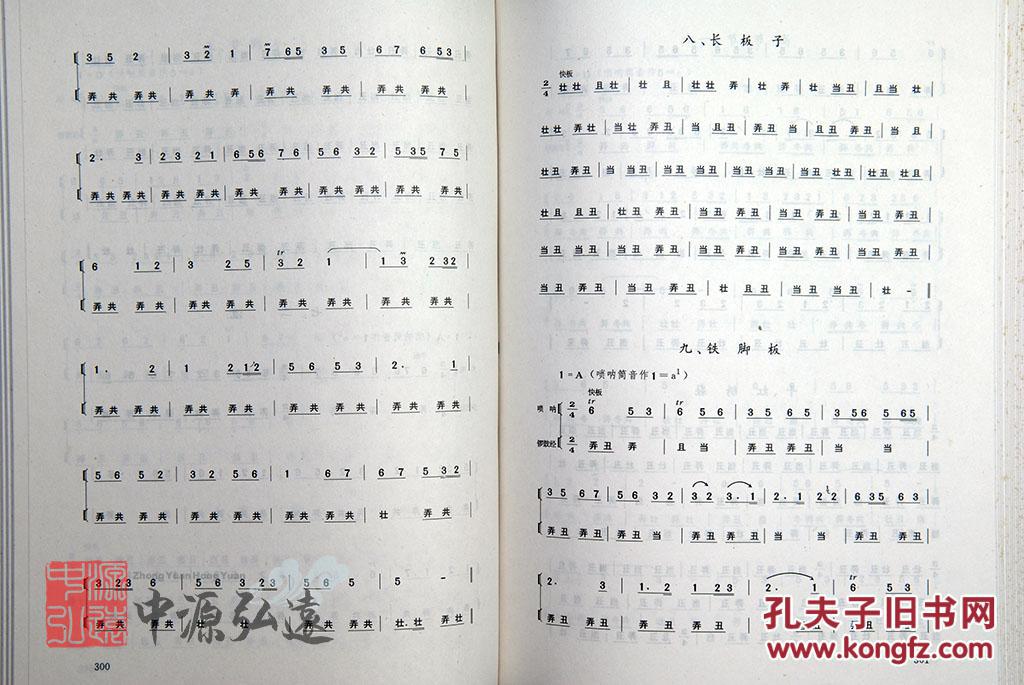 3 5 2 | 3 2 1 | 7 65 3 5 | 6 7 6 53 |
弄 共 弄 共 | 弄 共 弄 | 弄 共 弄 共 | 弄 共 弄 共 |
2. 3 | 2 3 2 1 | 6 56 7 6 | 5 6 3 2 | 5 35 7 5 |
弄共 弄共 | 弄共 弄共 | 弄共 弄共 | 弄共 弄共 | 弄共 弄共 |
6 1 2 | 3 2 5 | 3 2 1 | 1 3 2 32 |
弄 共 弄 共 | 弄 共 弄 共 | 弄 共 弄 共 | 弄 共 弄 共 |
1. 2 | 1 2 12 | 5 6 5 3 | 2. 1 |
弄 共 弄 共 | 弄 共 弄 共 | 弄 共 弄 共 | 弄 共 弄 共 |
5 6 5 2 | 3 2 5 6 | 1 6 7 | 6 7 5 32 |
弄 共 弄 共 | 弄 共 弄 共 | 弄 共 弄 共 | 壮 弄 共 |
3 23 6 | 5 6 3 23 | 5 6 5 | 5 - |
弄 共 弄 共 | 壮 壮 | 弄 共 弄 共 | 壮. 壮 弄 壮
300
八、长 板 子
快板
2/4 壮壮 且壮 | 壮 且 | 壮壮 弄 | 壮 弄 | 壮 当丑 | 且当 壮
壮壮 弄壮 | 当壮 弄丑 | 当 且丑 | 弄丑 当 | 且丑 弄丑 | 当 且 |
壮丑 弄丑 | 当 当丑 | 当丑 当丑 | 当丑 当丑 | 壮丑 当丑 | 壮 壮且
壮且 且丑 | 壮丑 弄丑 | 当丑 弄丑 | 当丑 弄丑 | 当丑 弄丑 |
当丑 当丑 | 当丑 弄丑 | 当丑 弄丑 | 当丑 弄丑 | 当丑 弄丑 |
当丑 弄丑 | 当丑 弄丑 | 壮 且丑 | 当丑 当丑 | 壮 - ‖
九、铁 脚 板
1=A（唢呐筒音作1=a¹）
快板
唢 呐 2/4 6 5 3 | 6 5 6 | 3 5 6 5 | 3 56 5 65 |
锣鼓经 2/4 弄丑 弄 | 且 当 | 弄丑 弄丑 | 当 当 |
3 5 6 7 | 5 6 3 2 | 3 2 3. 1 | 2. 1 2 2 | 6 35 6 3 |
弄丑 弄丑 | 弄丑 当 | 弄丑 弄丑 | 当 当 | 弄丑 弄丑 |
2. 3 | 1. 2 1 23 | 2. 1 | 6 5 6 |
弄丑 弄丑 | 弄丑 弄丑 | 弄丑 弄丑
301
中源弘远
Zhong Yuan Hong Yuan
中源弘遠
孔夫子旧书网
www.kongfz.com